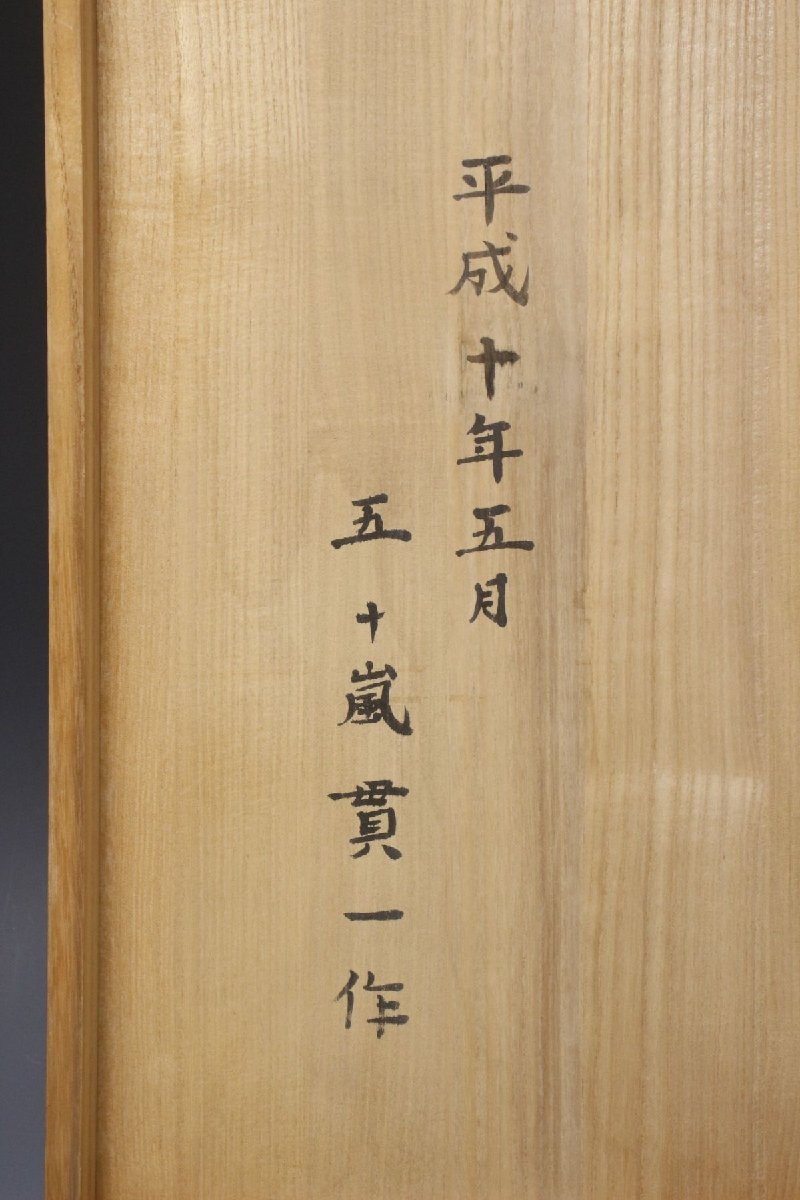 平成十年五月
五十嵐貫一作